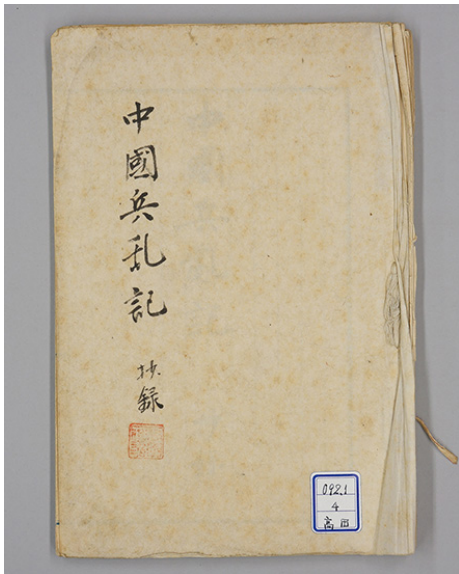 中國兵乱記
抄録
092.1
4
高西